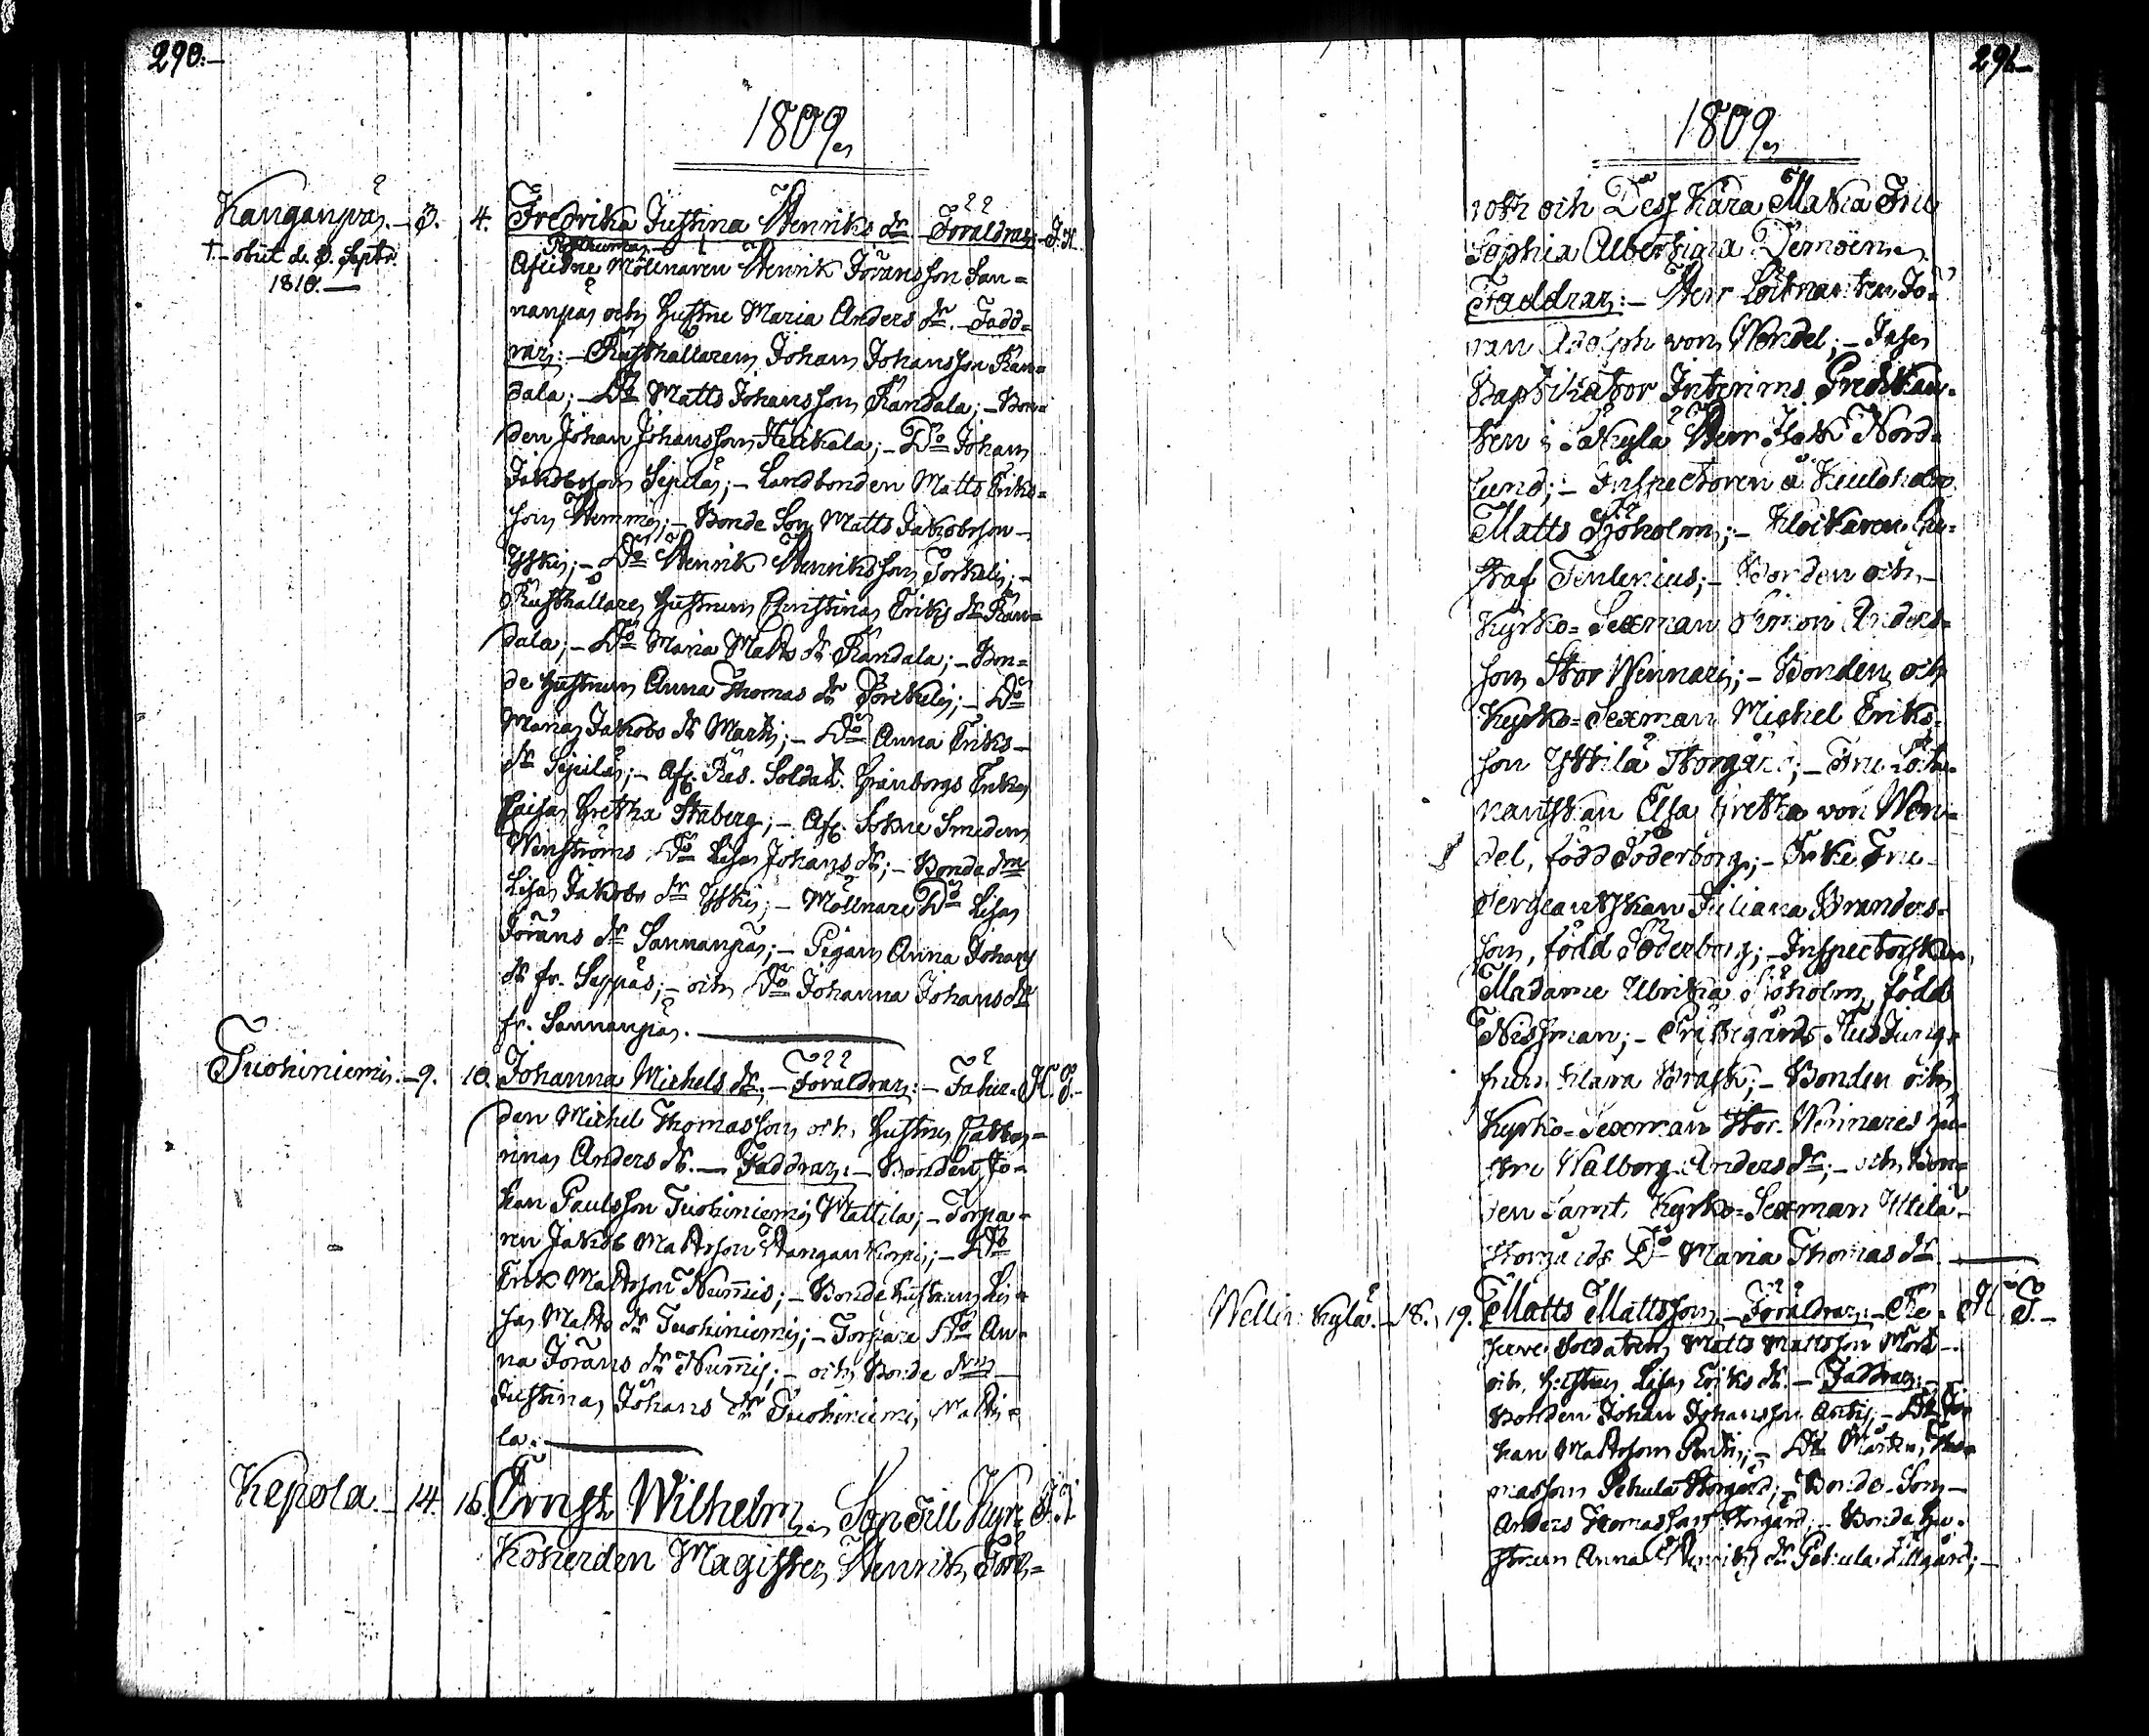 290.
1809.
Kanganpää. – 3. 4. Fredrika Justina Henriks dr. – Föräldrar: – J. H.
† – obiit d. 3. Septr.
1810. —
Posthuma
Aflidne Möllnaren Henrik Jöransson San=
nanpää och Hustru Maria Anders dr. – Fadd=
rar: – Rusthållaren Johan Johansson Ran=
dala; – Do Matts Johansson Randala; – Bon=
den Johan Johansson Heikkala; – Do Johan
Jakobsson Sipilä; – Landbonden Matts Eriks=
son Hemmi; – Bonde Son Matts Jakobsson –
Yski; – Do Henrik Henriksson Torkeli; –
Rusthållare Hustrun Christina Eriks dr Ran=
dala; – Do Maria Matts dr Randala; – Bon=
de Hustrun Anna Thomas dr Torkeli; – Do
Maria Jakobs dr Marti; – Do Anna Eriks –
dr Sipilä; – Afl. Res. Soldat. Granborgs Enka
Caisa Gretha Staberg; – Afl. Sokne Smeden
Wenströms Do Lisa Johans dr; – Bonde drn
Lisa Jakobs dr Yski; – Möllnare Do Lisa
Jörans dr Sannanpää; – Pigan Anna Johans
dr fr. Seppä; – och Do Johanna Johans dr
fr. Sannanpää. —
Tuohiniemi. – 9. 10. Johanna Michels dr. – Föräldrar: – Inhu= H. J. –
den Michel Thomasson och Hustru Catha=
rina Anders dr. — Faddrar: – Bonden Jo=
han Paulsson Tuohiniemi Mattila; – Torpa=
ren Jakob Mattsson Kangankorpi; – Do
Erik Mattsson Nummi; – Bonde Hustrun Li=
sa Matts dr Tuohiniemi; – Torpare Do An=
na Jörans dr Nummi; – och Bonde drn –
Justina Johans dr Tuohiniemi Matti=
la. —
Kepola. – 14. 16. Ernst Wilhelm, Son Till Kyr=
koherden Magister Henrik
291.
1809.
roth och Dess Kära Maka Fru
Sophia Albertina
Faddrar: – Herr Löitnanten Jö=
ran Adolph von Wendel; –
Baptisator Interims Predikan=
ten i Säkylä Herr Isak Nord=
lund; – Inspectoren å
Matts Sjöholm; – Klockaren Gu=
staf Tenlenius; – Bonden och –
Kyrko=Sexman Simon Anders=
son Stor Wennari; – Bonden och
Kyrko=Sexman Michel Eriks=
son Yttilä Storgård; – Fru Löjt=
nantskan Elsa Gretha von Wen=
del, född Söderborg; – Enke Fru –
Sergeantskan Juliana Branders=
son, född Söderborg; – Inspectorskan
Madame Ulrika Sjöholm, född
Nissman; – Prästgårds Hus Jung=
frun Klara Brask; – Bonden och
Kyrko=Sexman Stor Wennaris Hu=
stru Walborg Anders dr; – och Bon=
den samt Kyrko=Sexman Yttilä –
Storgårds Do Maria Thomas dr. —
Wellin kylä. – 18. 19. Matts Mattsson. – Föräldrar: – Re= H. J. –
serve Soldaten Matts Mattsson Mörk –
och Hustrun Lisa Eriks dr. – Faddrar: –
Bonden Johan Johansson Antti; – Do Jo=
han Mattsson Pentti; – Do Mårten Tho=
masson Pehula Storgård; – Bonde Son –
Anders Thomasson Storgård; – Bonde Hu=
strun Anna Henriks dr Pehula Lillgård; –